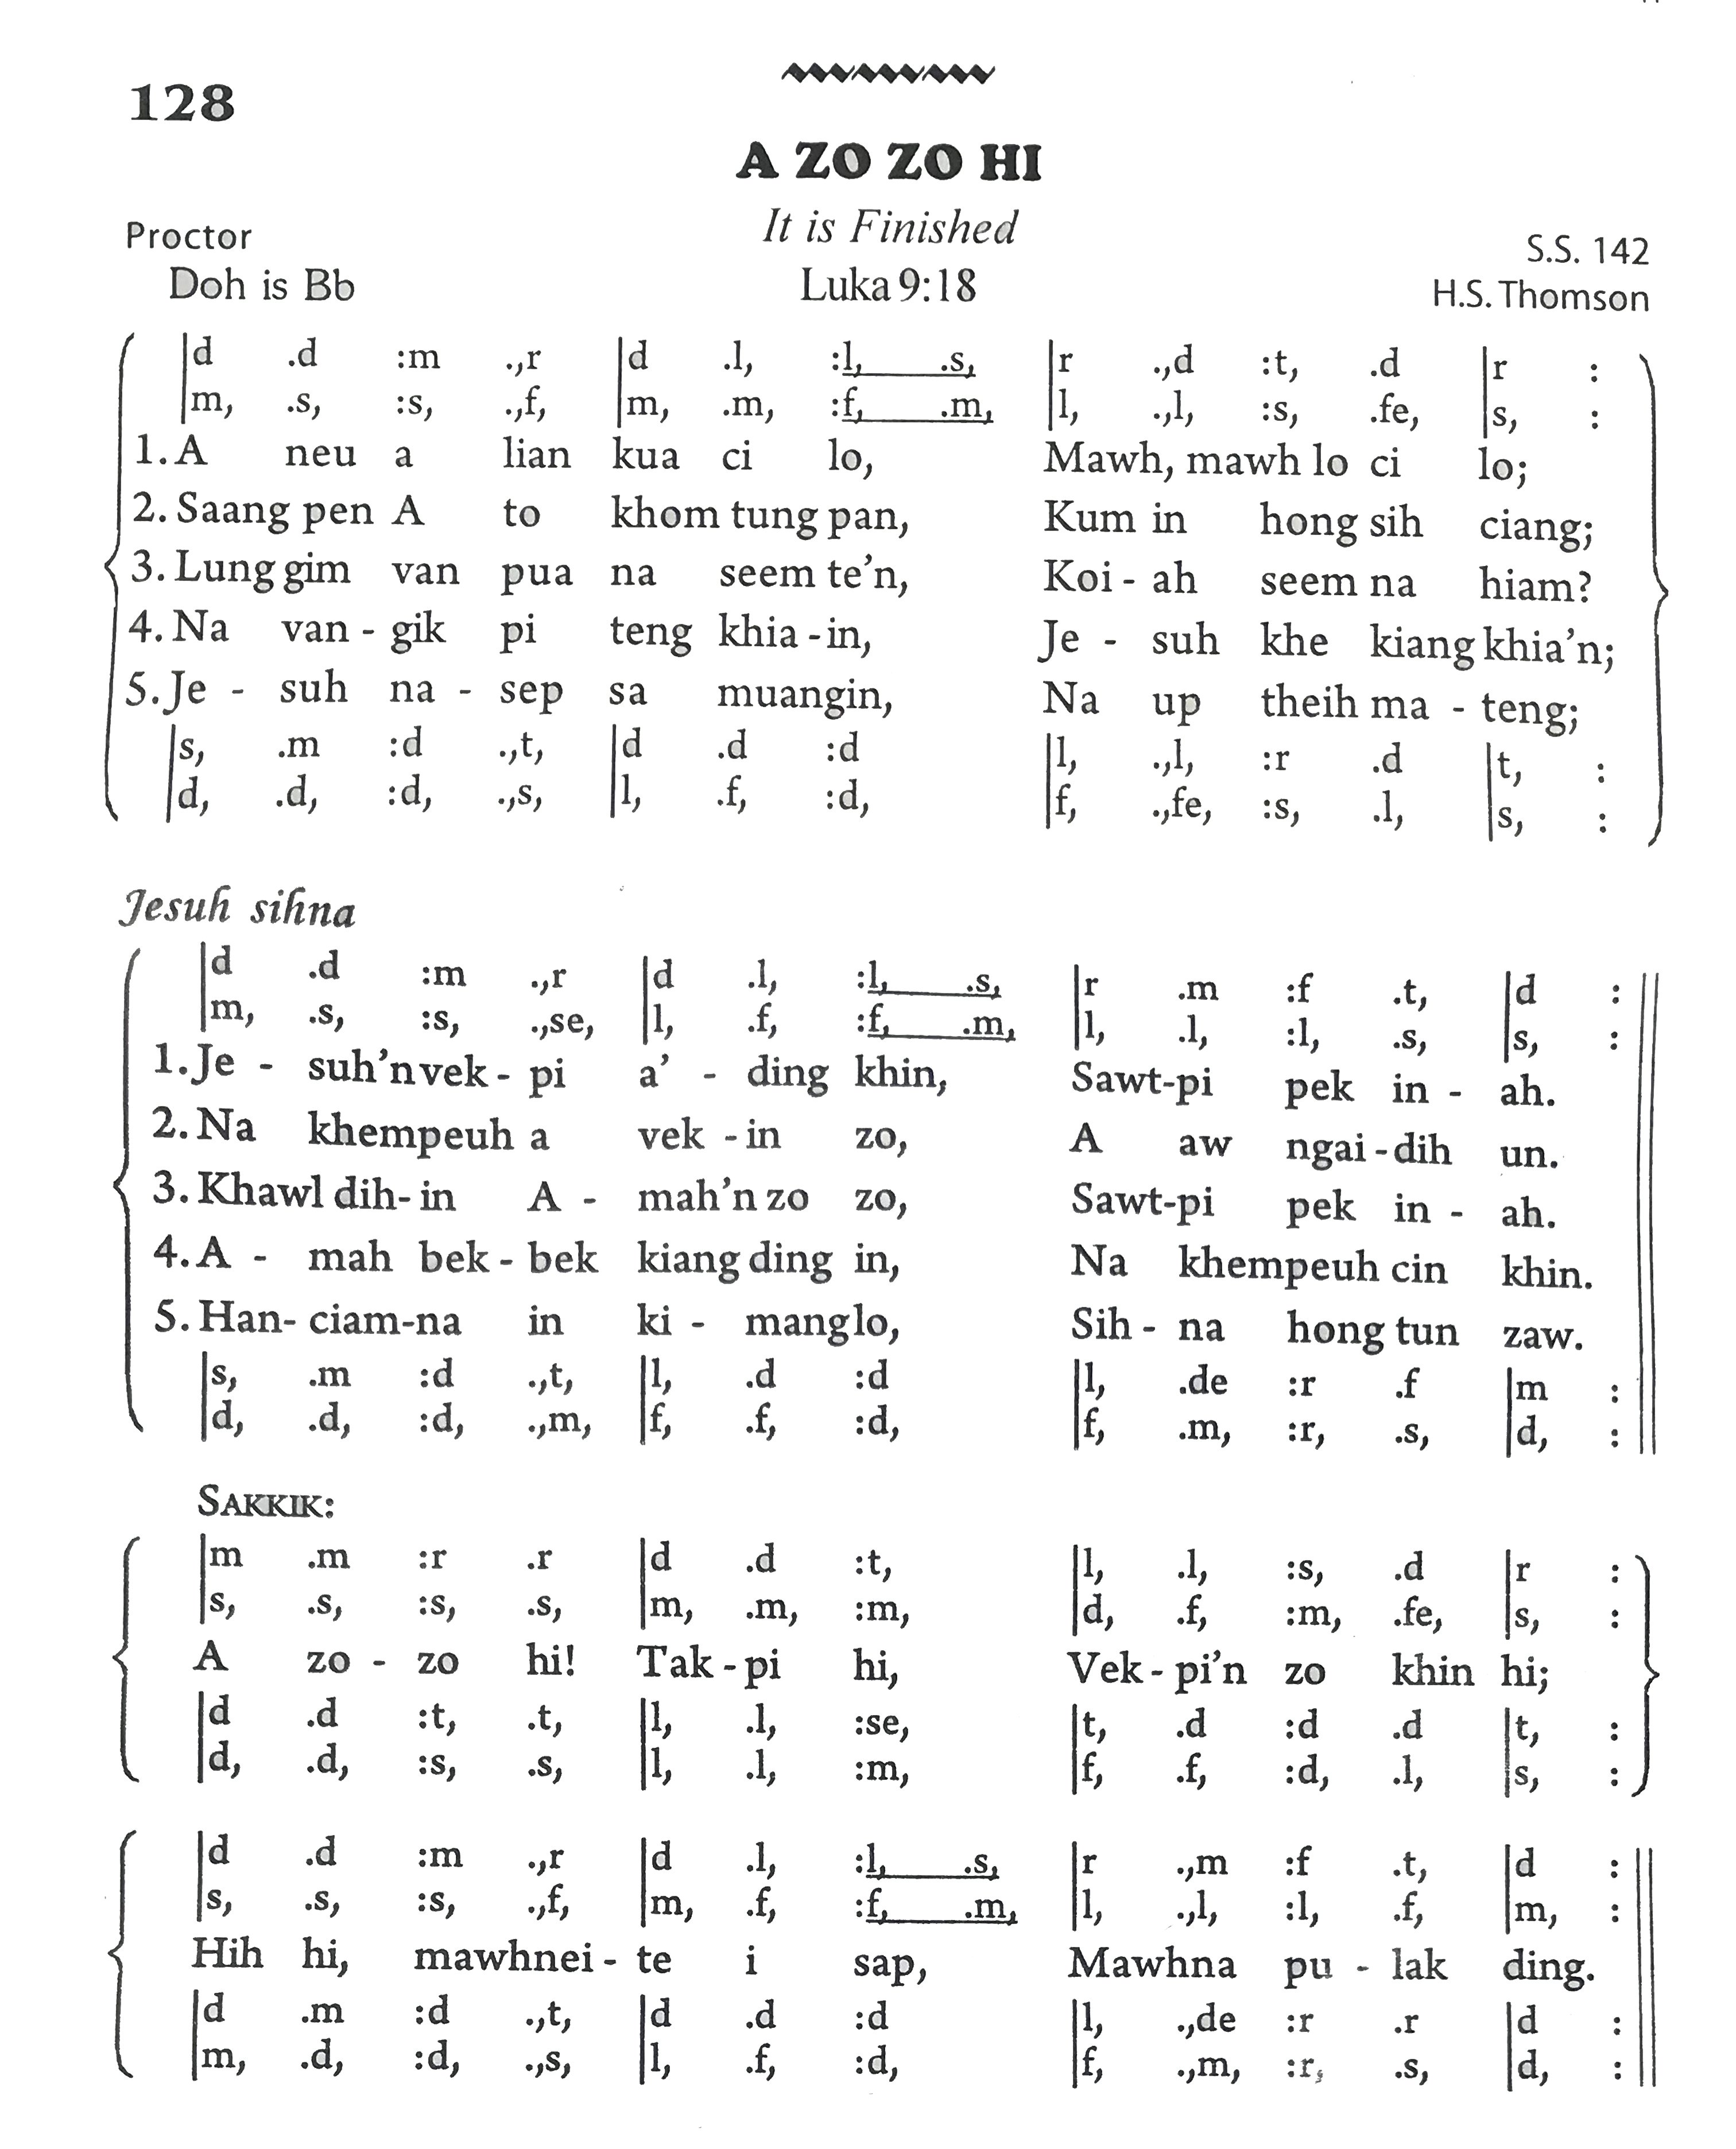 128
A ZO ZO HI
It is Finished
Proctor
S.S. 142
Doh is Bb
Luka 9:18
H.S. Thomson
|d .d :m .,r |d .l, :l, .s, |r .,d :t, .d |r :
|m, .s, :s, .,f, |m, .m, :f, .m, |l, .,l, :s, .fe, |s, :
1. A neu a lian kua ci lo, Mawh, mawh lo ci lo;
2. Saang pen A to khom tung pan, Kum in hong sih ciang;
3. Lung gim van pua na seem te'n, Koi - ah seem na hiam?
4. Na van - gik pi teng khia - in, Je - suh khe kiang khia'n;
5. Je - suh na - sep sa muangin, Na up theih ma - teng;
|s, .m :d .,t, |d .d :d |l, .,l, :r .d |t, :
|d, .d, :d, .,s, |l, .f, :d, |f, .,fe, :s, .l, |s, :
Jesuh sihna
|d .d :m .,r |d .l, :l, .s, |r .m :f .t, |d :
|m, .s, :s, .,se, |l, .f, :f, .m, |l, .l, :l, .s, |s, :
1. Je - suh'n vek - pi a' - ding khin, Sawt-pi pek in - ah.
2. Na khempeuh a vek - in zo, A aw ngai - dih un.
3. Khawl dih- in A - mah'n zo zo, Sawt-pi pek in - ah.
4. A - mah bek - bek kiang ding in, Na khempeuh cin khin.
5. Han- ciam-na in ki - manglo, Sih - na hong tun zaw.
|s, .m :d .,t, |l, .d :d |l, .de :r .f |m :
|d, .d, :d, .,m, |f, .f, :d, |f, .m, :r, .s, |d, :
SAKKIK:
|m .m :r .r |d .d :t, |l, .l, :s, .d |r :
|s, .s, :s, .s, |m, .m, :m, |d, .f, :m, .fe, |s, :
A zo - zo hi! Tak - pi hi, Vek - pi'n zo khin hi;
|d .d :t, .t, |l, .l, :se, |t, .d :d .d |t, :
|d, .d, :s, .s, |l, .l, :m, |f, .f, :d, .l, |s, :
|d .d :m .,r |d .l, :l, .s, |r .,m :f .t, |d :
|s, .s, :s, .,f, |m, .f, :f, .m, |l, .,l, :l, .f, |m, :
Hih hi, mawhnei - te i sap, Mawhna pu - lak ding.
|d .m :d .,t, |d .d :d |l, .,de :r .r |d :
|m, .d, :d, .,s, |l, .f, :d, |f, .,m, :r, .s, |d, :